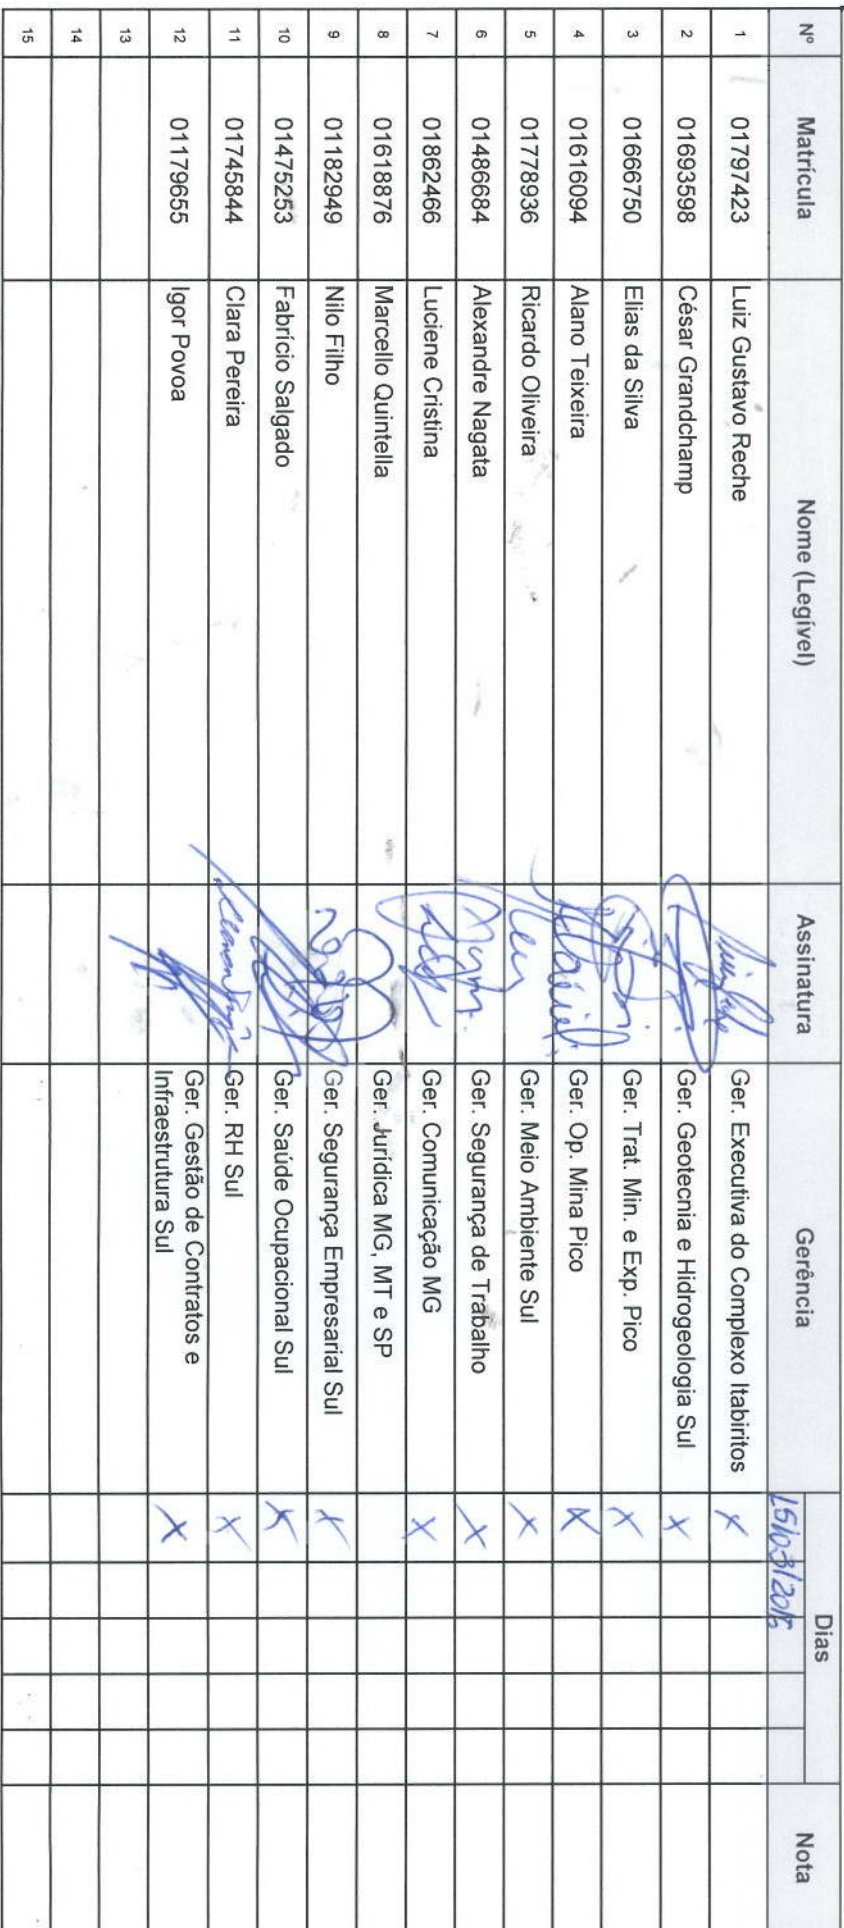 Nº Matrícula Nome (Legível) Assinatura Gerência Dias Nota
15/03/2016
1 01797423 Luiz Gustavo Reche Ger. Executiva do Complexo Itabiritos X
2 01693598 César Grandchamp Ger. Geotecnia e Hidrogeologia Sul X
3 01666750 Elias da Silva Ger. Trat. Min. e Exp. Pico X
4 01616094 Alano Teixeira Ger. Op. Mina Pico X
5 01778936 Ricardo Oliveira Ger. Meio Ambiente Sul X
6 01486684 Alexandre Nagata Ger. Segurança de Trabalho X
7 01862466 Luciene Cristina Ger. Comunicação MG X
8 01618876 Marcello Quintella Ger. Jurídica MG, MT e SP
9 01182949 Nilo Filho Ger. Segurança Empresarial Sul X
10 01475253 Fabrício Salgado Ger. Saúde Ocupacional Sul X
11 01745844 Clara Pereira Ger. RH Sul X
12 01179655 Igor Povoa Ger. Gestão de Contratos e X
Infraestrutura Sul
13
14
15